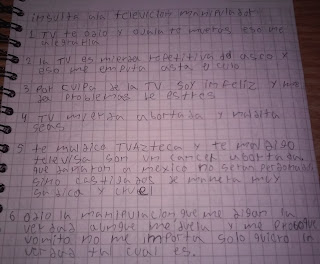 insulto ala television manipulador
1 TV te odio y cuanto mueras eso me
alegraria
2 la TV es mierda repetitiva da asco y
eso me emputa asta el culo
3 por culpa de la TV soy infeliz y me
da problemas de estres
4 TV mierda abortada y maldita
seas
5 te maldigo TV Azteca y te maldigo
televisa son un cancer abortadas
que dañaron a mexico no seran perdonadas
sino castigados de manera muy
sadica y cruel
6 odio la manipulacion que me digan la
verdad aunque me duela y me provoque
vomito no me importa solo quiero la
verdad tal cual es.